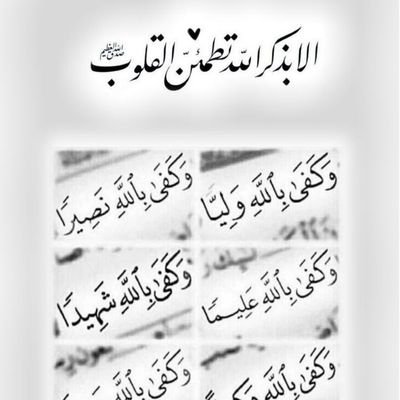 الا بذكر الله تطمئن القلوب
صدق الله العظيم
وَكَفَىٰ بِٱللَّهِ وَلِيًّا
وَكَفَىٰ بِٱللَّهِ نَصِيرًا
وَكَفَىٰ بِٱللَّهِ عَلِيمًا
وَكَفَىٰ بِٱللَّهِ شَهِيدًا
وَكَفَىٰ بِٱللَّهِ
وَكَفَىٰ بِٱللَّهِ